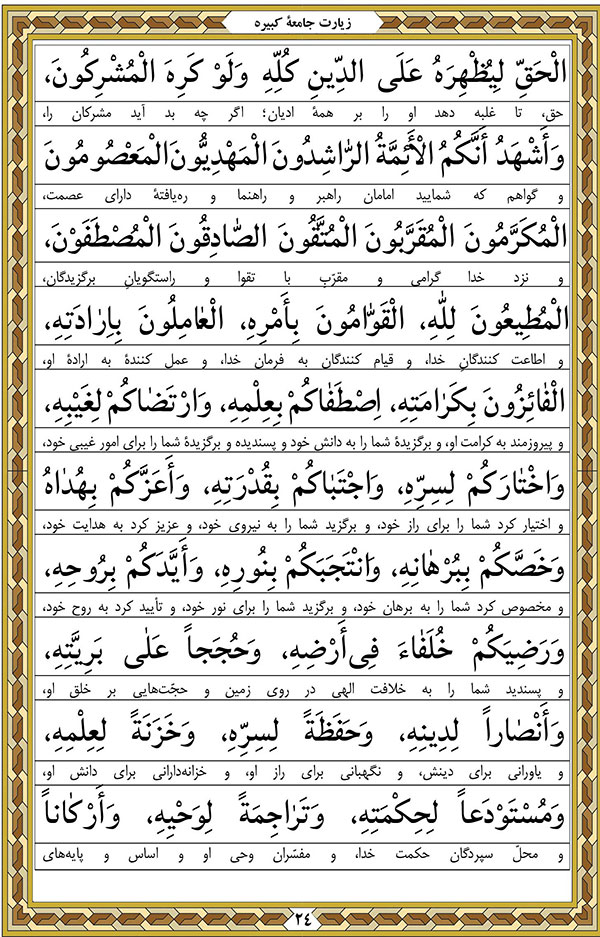 زیارت جامعهٔ کبیره
الْحَقِّ لِيُظْهِرَهُ عَلَى الدِّينِ كُلِّهِ وَلَوْ كَرِهَ الْمُشْرِكُونَ،
حق، تا غلبه دهد او را بر همهٔ ادیان؛ اگر چه بد آید مشرکان را،
وَأَشْهَدُ أَنَّكُمُ الْأَئِمَّةُ الرّٰاشِدُونَ الْمَهْدِيُّونَ الْمَعْصُومُونَ
و گواهم که شمایید امامان راهبر و راهنما و ره‌یافتهٔ دارای عصمت،
الْمُكَرَّمُونَ الْمُقَرَّبُونَ الْمُتَّقُونَ الصّٰادِقُونَ الْمُصْطَفَوْنَ،
و نزد خدا گرامی و مقرّب با تقوا و راستگویانِ برگزیدگان،
الْمُطِيعُونَ لِلّٰهِ، الْقَوّٰامُونَ بِأَمْرِهِ، الْعٰامِلُونَ بِإِرٰادَتِهِ،
و اطاعت کنندگانِ خدا، و قیام کنندگان به فرمان خدا، و عمل کنندهٔ به ارادهٔ او،
الْفٰائِزُونَ بِكَرٰامَتِهِ، اِصْطَفٰاكُمْ بِعِلْمِهِ، وَارْتَضٰاكُمْ لِغَيْبِهِ،
و پیروزمند به کرامت او، و برگزیدهٔ شما را به دانش خود و پسندیده و برگزیدهٔ شما را برای امور غیبی خود،
وَاخْتٰارَكُمْ لِسِرِّهِ، وَاجْتَبٰاكُمْ بِقُدْرَتِهِ، وَأَعَزَّكُمْ بِهُدٰاهُ
و اختیار کرد شما را برای راز خود، و برگزید شما را به نیروی خود، و عزیز کرد به هدایت خود،
وَخَصَّكُمْ بِبُرْهٰانِهِ، وَانْتَجَبَكُمْ بِنُورِهِ، وَأَيَّدَكُمْ بِرُوحِهِ،
و مخصوص کرد شما را به برهان خود، و برگزید شما را برای نور خود، و تأیید کرد به روح خود،
وَرَضِيَكُمْ خُلَفٰاءَ فِي أَرْضِهِ، وَحُجَجاً عَلٰى بَرِيَّتِهِ،
و پسندید شما را به خلافت الهی در روی زمین و حجّت‌هایی بر خلق او،
وَأَنْصٰاراً لِدِينِهِ، وَحَفَظَةً لِسِرِّهِ، وَخَزَنَةً لِعِلْمِهِ،
و یاورانی برای دینش، و نگهبانی برای راز او، و خزانه‌دارانی برای دانش او،
وَمُسْتَوْدَعاً لِحِكْمَتِهِ، وَتَرٰاجِمَةً لِوَحْيِهِ، وَأَرْكٰاناً
و محلّ سپردگان حکمت خدا، و مفسّران وحی او و اساس و پایه‌های
٢٤